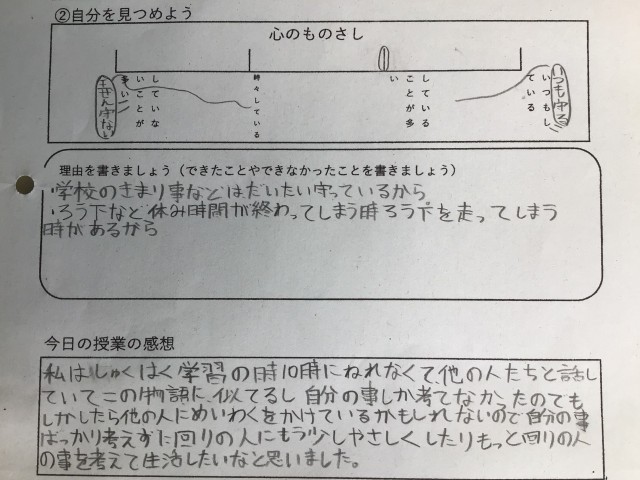 ②自分を見つめよう
心のものさし
していないことが多い
時々している
していることが多い
いつもしている
いつも守る
理由を書きましょう（できたことやできなかったことを書きましょう）
・学校のきまり事などはだいたい守っているから。
・ろう下など休み時間が終わってしまう時ろう下を走ってしまう
時があるから
今日の授業の感想
私はしゅくはく学習の時10時にねれなくて、他の人たちと話し
ていてこの物語に似てるし自分の事しか考てなかったのでも
しかしたら他の人にめいわくをかけているかもしれないので自分の事
ばっかり考えずに回りの人にもう少しやさしくしたりもっと回りの人
の事を考えて生活したいなと思いました。